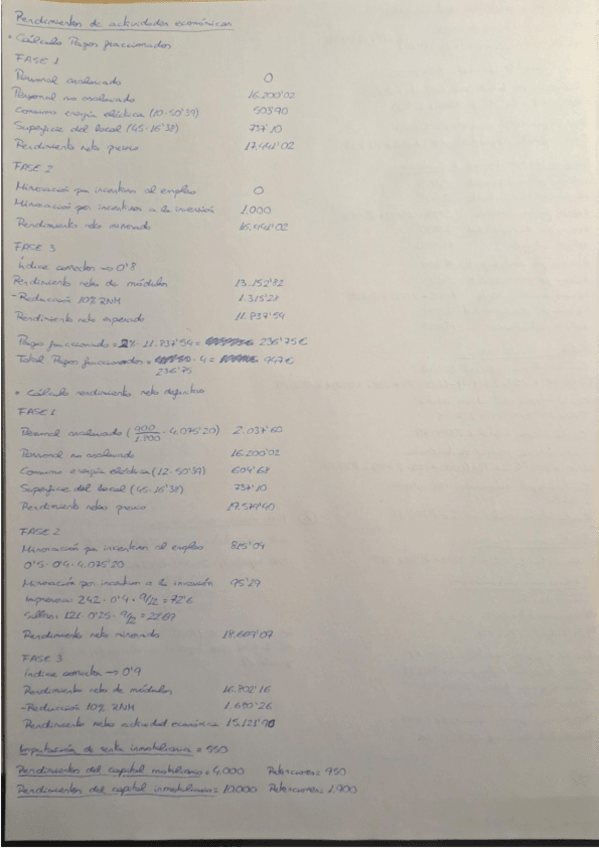 Rendimientos de actividades económicas
• Cálculo Pagos fraccionados
FASE 1
Personal asalariado 0
Personal no asalariado 16.200'02
Consumo energía eléctrica (10·50'39) 503'90
Superficie del local (45·16'38) 737'10
Rendimiento neto previo 17.441'02
FASE 2
Minoración por incentivos al empleo 0
Minoración por incentivos a la inversión 1.000
Rendimiento neto minorado 16.441'02
FASE 3
Índice corrector → 0'8
Rendimiento neto de módulos 13.152'82
-Reducción 10% RNM 1.315'28
Rendimiento neto esperado 11.837'54
Pagos fraccionado = 2% · 11.837'54 = 236'75€
Total Pagos fraccionados = · 4 = 947€
236'75
• Cálculo rendimiento neto definitivo
FASE 1
Personal asalariado (900/1.800 · 4.075'20) 2.037'60
Personal no asalariado 16.200'02
Consumo energía eléctrica (12·50'39) 604'68
Superficie del local (45·16'38) 737'10
Rendimiento neto previo 19.579'40
FASE 2
Minoración por incentivos al empleo 815'04
0'5 · 0'4 · 4.075'20
Minoración por incentivos a la inversión 95'29
Impresora: 242 · 0'4 · 9/12 = 72'6
Sillas: 121 · 0'25 · 9/12 = 22'69
Rendimiento neto minorado 18.669'07
FASE 3
Índice corrector → 0'9
Rendimiento neto de módulos 16.802'16
-Reducción 10% RNM 1.680'26
Rendimiento neto actividad económica 15.121'90
Imputación de renta inmobiliaria = 550
Rendimientos del capital mobiliario = 4.000 Retenciones: 950
Rendimientos del capital inmobiliario = 10.000 Retenciones: 1.900